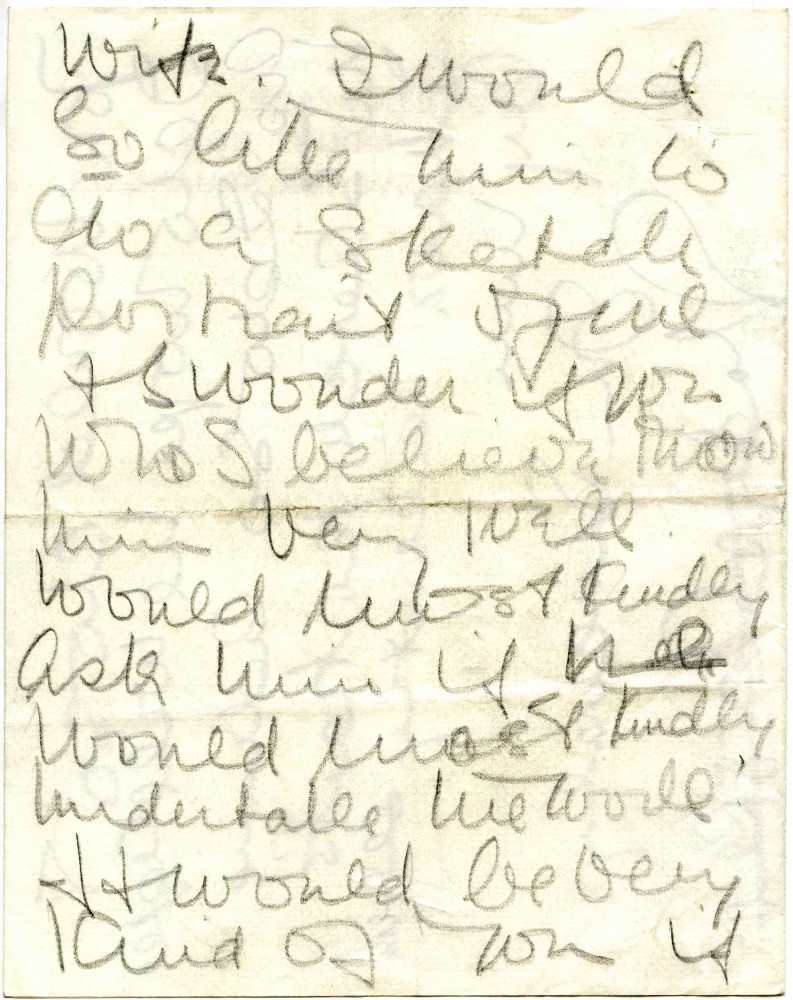 Wife. I would
So like him to
do a Sketch
Portrait of me
+ I wonder if you
Who I believe know
him very well
Would most kindly
ask him if he
Would most kindly
undertake the work!
It would be very
Kind of you if